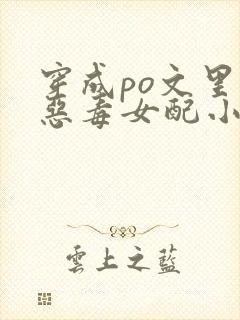 穿成po文里
惡毒女配.小
雲上之藍